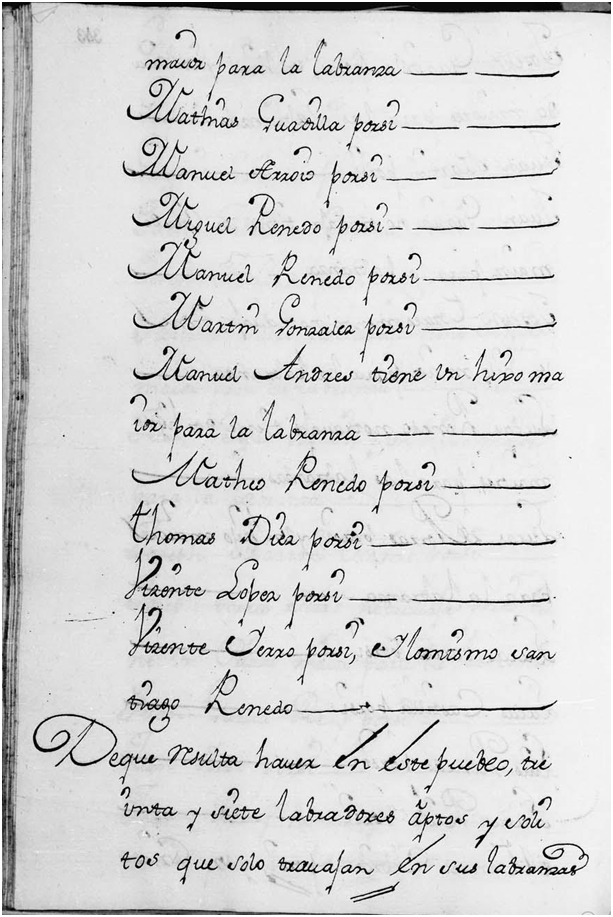 maior para la labranza
Mathias Guadilla porsi
Manuel Arroio porsi
Miguel Renedo porsi
Manuel Renedo porsi
Martin Gonzalez porsi
Manuel Andres tiene un hixo ma
ior para la labranza
Matheo Renedo porsi
Thomas Diez porsi
Vizente Lopez porsi
Vizente Serro porsi, Elomismo san
tiago Renedo
Deque resulta haver en este pueblo, tre
inta y siete labradores aptos y soli
tos que solo travajan en sus labranzas